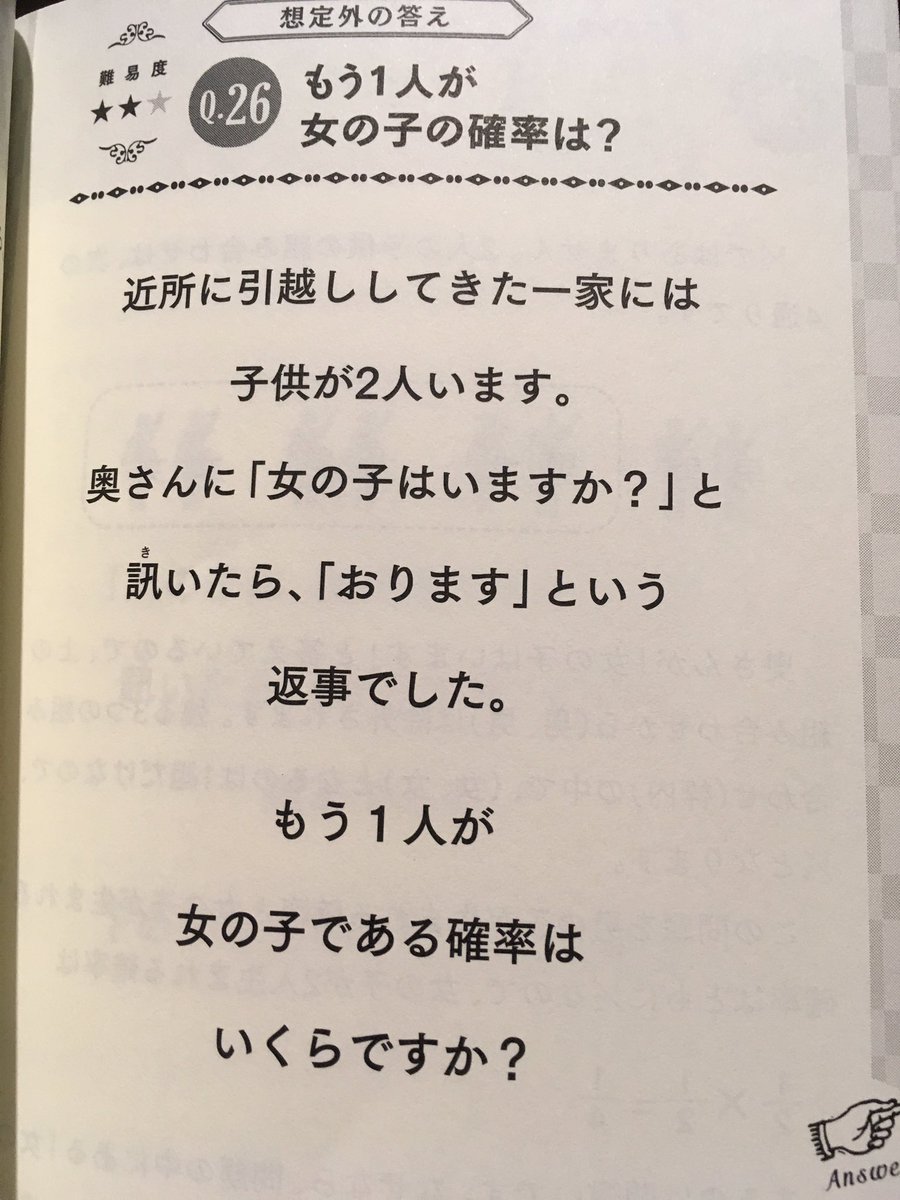 想定外の答え
難易度
★★★
Q.26
もう1人が
女の子の確率は？
近所に引越ししてきた一家には
子供が2人います。
奥さんに「女の子はいますか？」と
き
訊いたら、「おります」という
返事でした。
もう1人が
女の子である確率は
いくらですか？